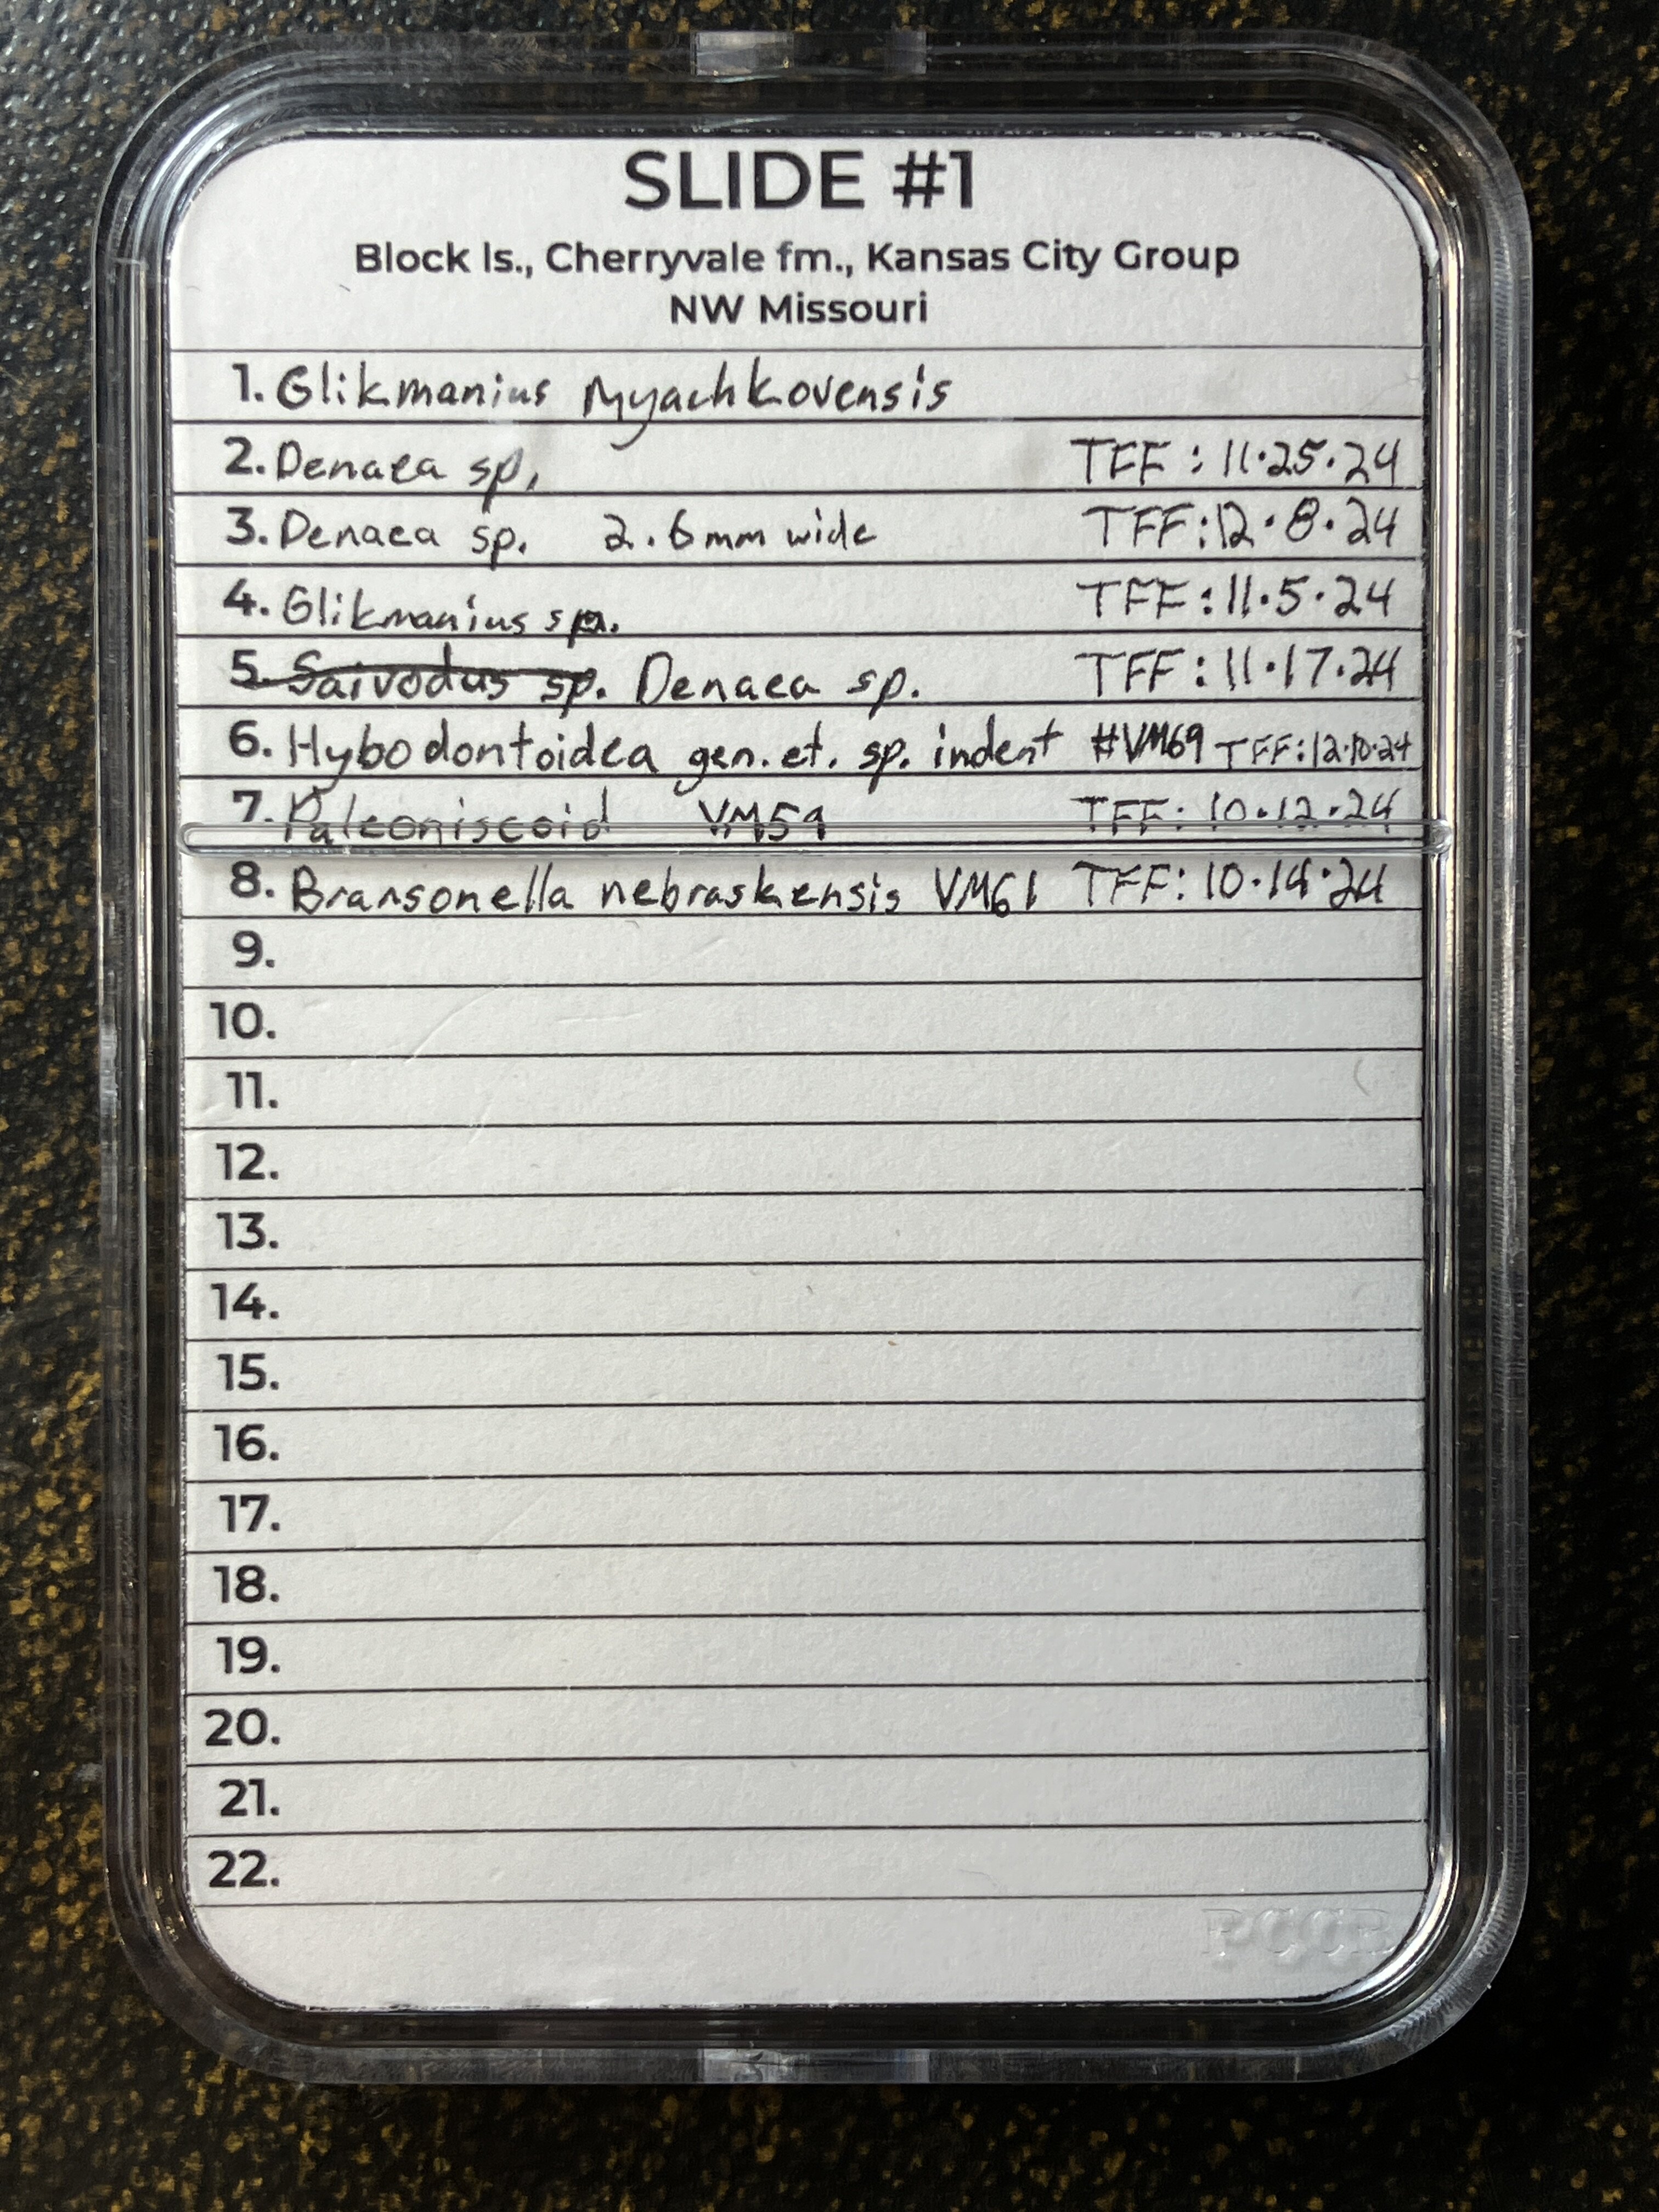 SLIDE #1
Block ls., Cherryvale fm., Kansas City Group
NW Missouri
1. Glikmanius Myachkovensis
2. Denaea sp. TFF: 11·25·24
3. Denaea sp. 2.6mm wide TFF: 12·8·24
4. Glikmanius sp. TFF: 11·5·24
5. Saivodus sp. Denaea sp. TFF: 11·17·24
6. Hybodontoidea gen. et. sp. indent #VM69 TFF: 12·10·24
7. Paleoniscoid VM59 TFF: 10·12·24
8. Bransonella nebraskensis VM61 TFF: 10·14·24
9.
10.
11.
12.
13.
14.
15.
16.
17.
18.
19.
20.
21.
22.